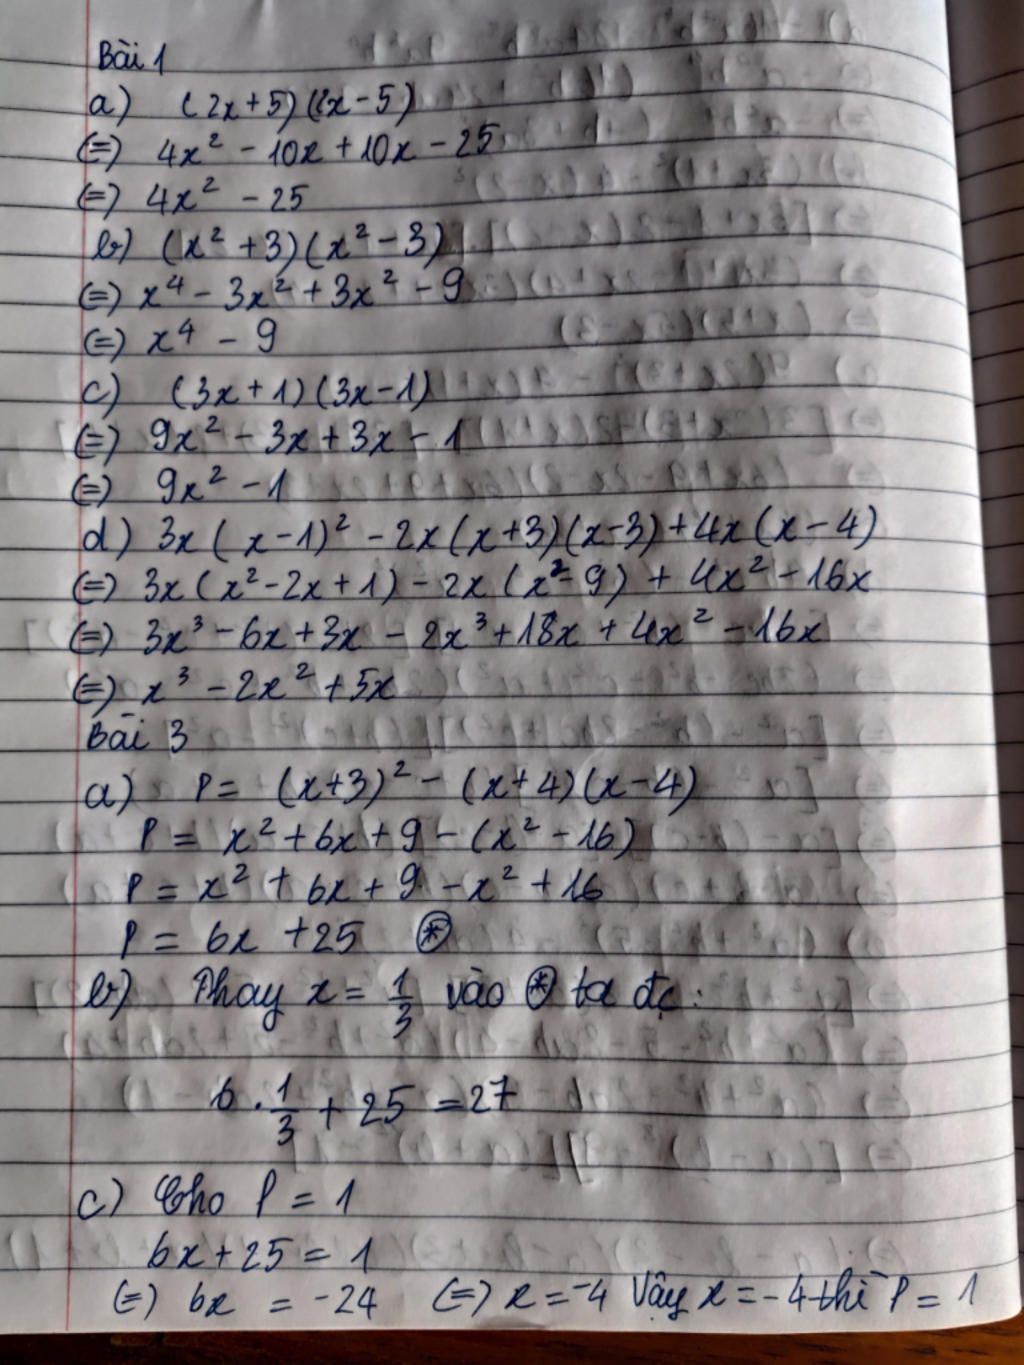 Bài 1
a) (2x+5)(2x-5)
(=) 4x² - 10x + 10x - 25
(=) 4x² - 25
b) (x² + 3)(x² - 3)
(=) x⁴ - 3x² + 3x² - 9
(=) x⁴ - 9
c) (3x+1)(3x-1)
(=) 9x² - 3x + 3x - 1
(=) 9x² - 1
d) 3x(x-1)² - 2x(x+3)(x-3) + 4x(x-4)
(=) 3x(x² - 2x + 1) - 2x(x² - 9) + 4x² - 16x
(=) 3x³ - 6x + 3x - 2x³ + 18x + 4x² - 16x
(=) x³ - 2x² + 5x
Bài 3
a) P = (x+3)² - (x+4)(x-4)
P = x² + 6x + 9 - (x² - 16)
P = x² + 6x + 9 - x² + 16
P = 6x + 25 ⊛
b) Thay x = 1/3 vào ⊛ ta đc:
6 . 1/3 + 25 = 27
c) Cho P = 1
6x + 25 = 1
(=) 6x = -24 (=) x = -4 Vậy x = -4 thì P = 1